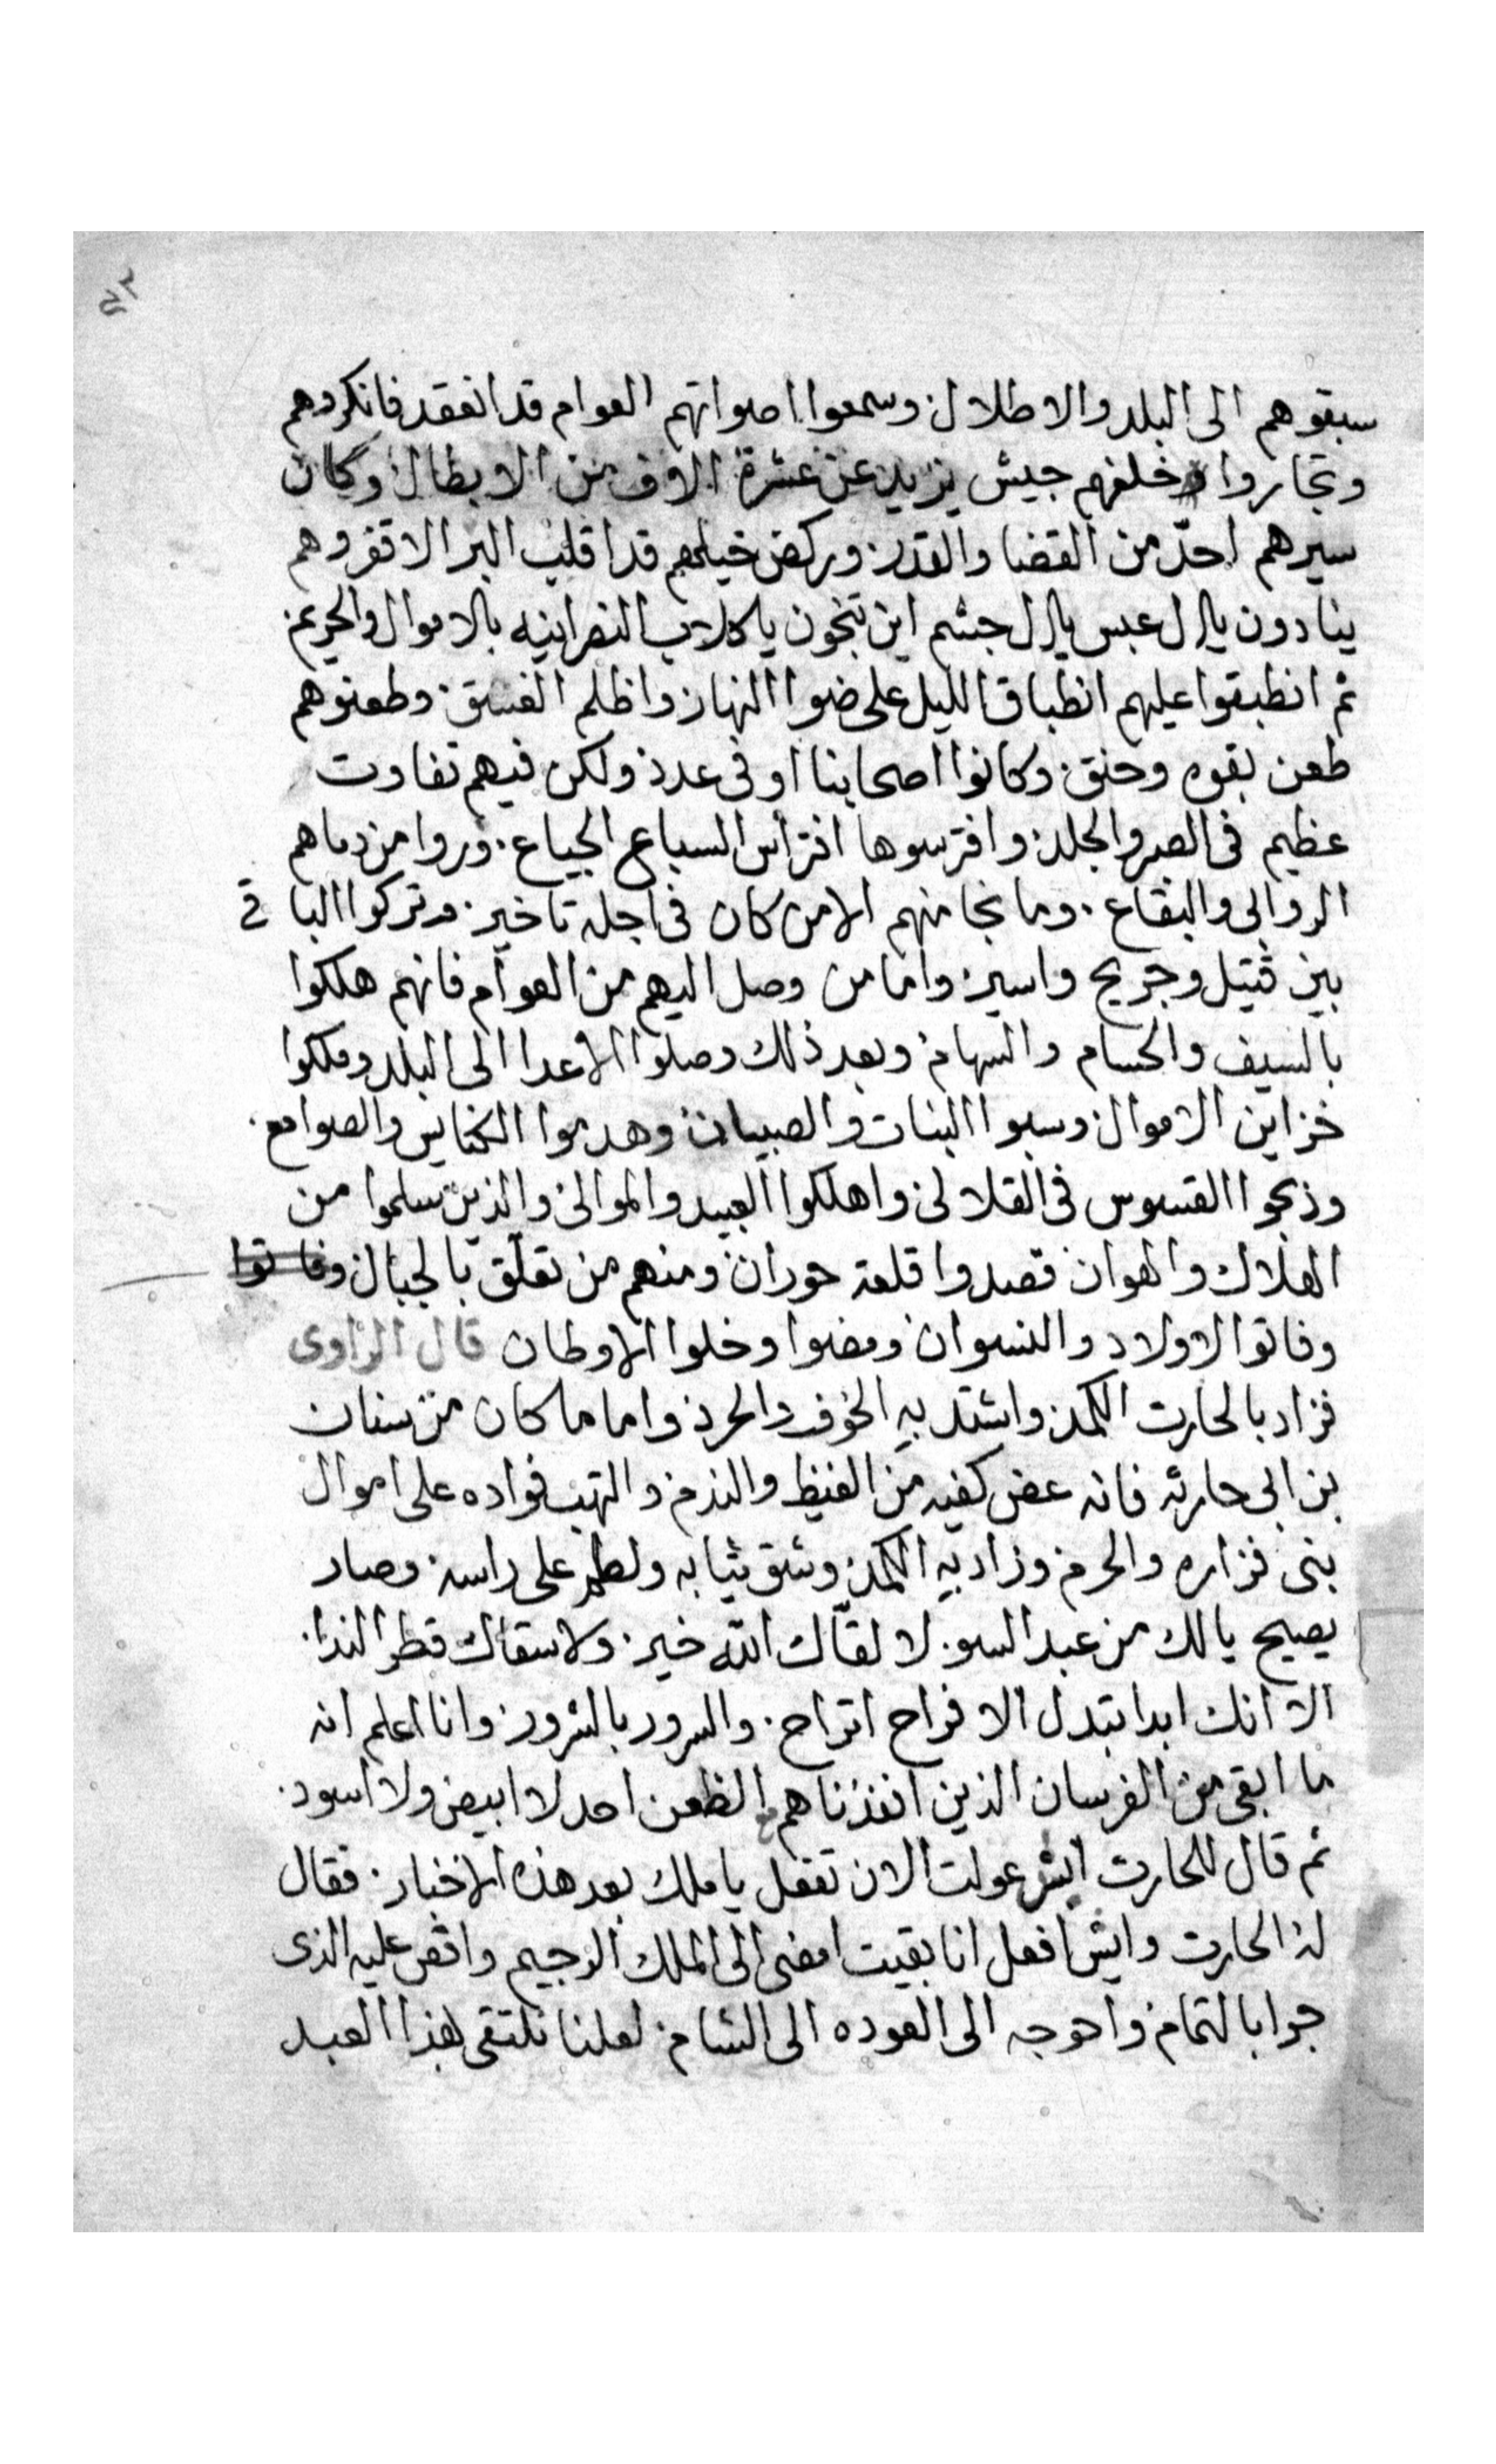 ٤٣
سبقوهم الى البلد والاطلال وسمعوا اصواتهم العوام قد انعقد فانكردهم
وتجاروا وخلفهم جيش يزيد عن عشرة الاف من الابطال وكان
سيرهم احدّ من القضا والقدر وركض خيلهم قد اقلب البر الاقفر وهم
ينادون يال عبس يال جشم اين تنجون يا كلاب النصرانيه بالاموال والحريم
ثم انطبقوا عليهم انطباق الليل على ضوا النهار واظلم الغسق وطعنوهم
طعن بقوه وحنق وكانوا اصحابنا اوفى عدد ولكن فيهم تفاوت
عظيم فى الصبر والجلد وافترسوها افتراس السباع الجياع وروا من دماهم
الروابى والبقاع وما نجا منهم الا من كان فى اجله تاخير وتركوا الباقى
بين قتيل وجريح واسير واما من وصل اليهم من العوام فانهم هلكوا
بالسيف والحسام والسهام وبعد ذلك وصلوا الاعدا الى البلد وملكوا
خزاين الاموال وسبوا البنات والصبيان وهدموا الكنايس والصوامع
وذبحوا القسوس فى القلالى واهلكوا العبيد والموالى والذين سلموا من
الهلاك والهوان قصدوا قلعة حوران ومنهم من تعلّق بالجبال وفاتوا
وفاتوا الاولاد والنسوان ومضوا وخلوا الاوطان قال الراوى
فزاد بالحارت الكمد واشتد به الخوف والحرد واما ما كان من سنان
بن ابى حارثه فانه عض كفيه من الغيظ والندم والتهب فواده على اموال
بنى فزاره والحرم وزاد به الكمد وشق ثيابه ولطم على راسه وصار
يصيح يا لك من عبد السو لا لقّاك الله خير ولا سقاك قطر الندا
الا انك ابدا تبدل الافراح اتراح والسرور بالشرور وانا اعلم انه
ما ابقى من الفرسان الذين انفذناهم الظعن احد لا ابيض ولا اسود
ثم قال للحارت ايش عولت الان تفعل يا ملك بعد هذه الاخبار فقال
له الحارت وايش افعل انا بقيت امضى الى الملك الرجيم واقص عليه الذى
جرا بالتمام واحوجه الى العوده الى الشام لعلنا نلتقى بهذا العبد